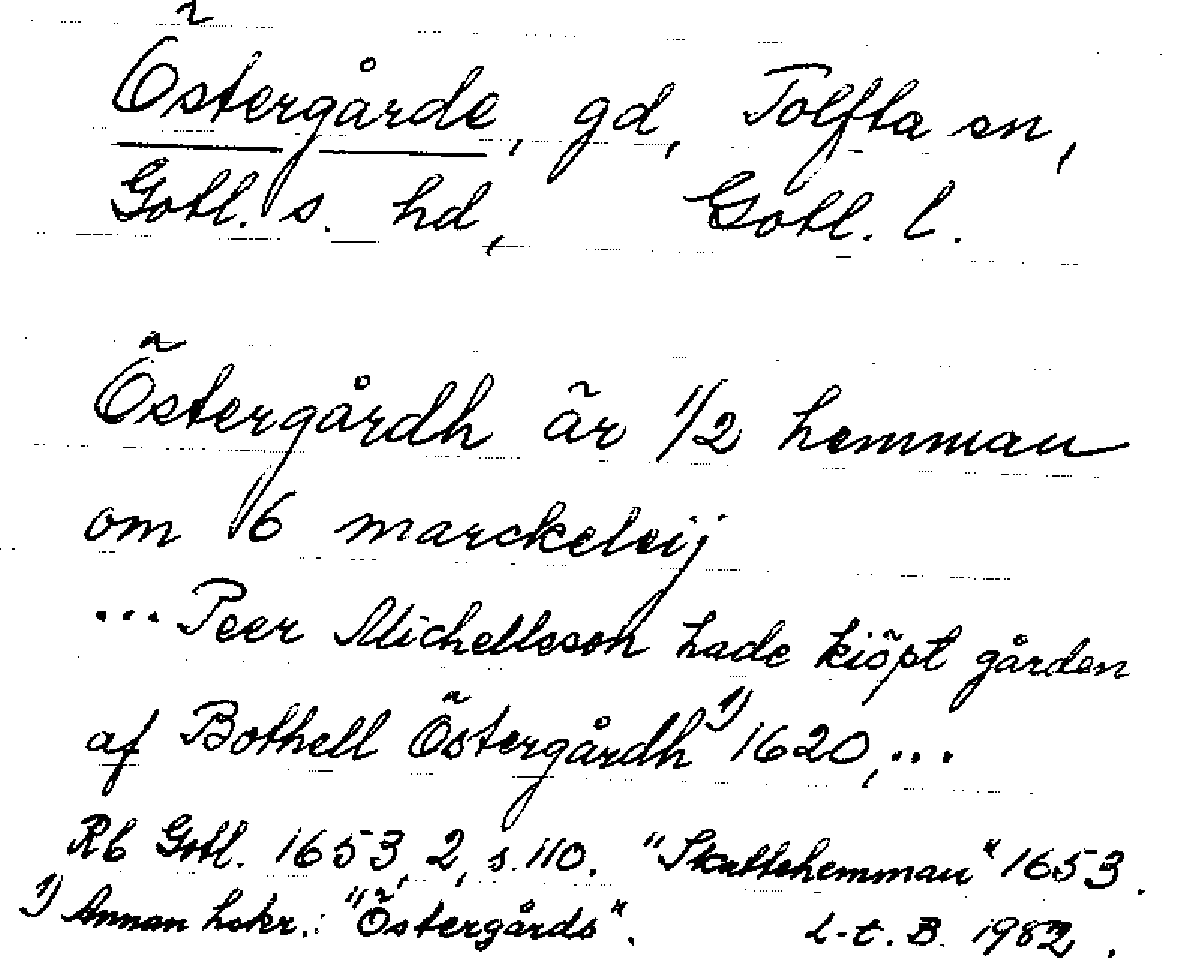 Östergårde, gd, Tolfta sn,
Gotl. s. hd, Gotl. l.
Östergårdh är 1/2 hemman
om 6 marckeleij
... Peer Michellsson hade kiöpt gården
af Bothell Östergårdh 1) 1620,...
Rb Gotl. 1653, 2, s. 110. "Skattehemman" 1653.
1) Annan hskr.: "Östergårds". L-t. B. 1982.